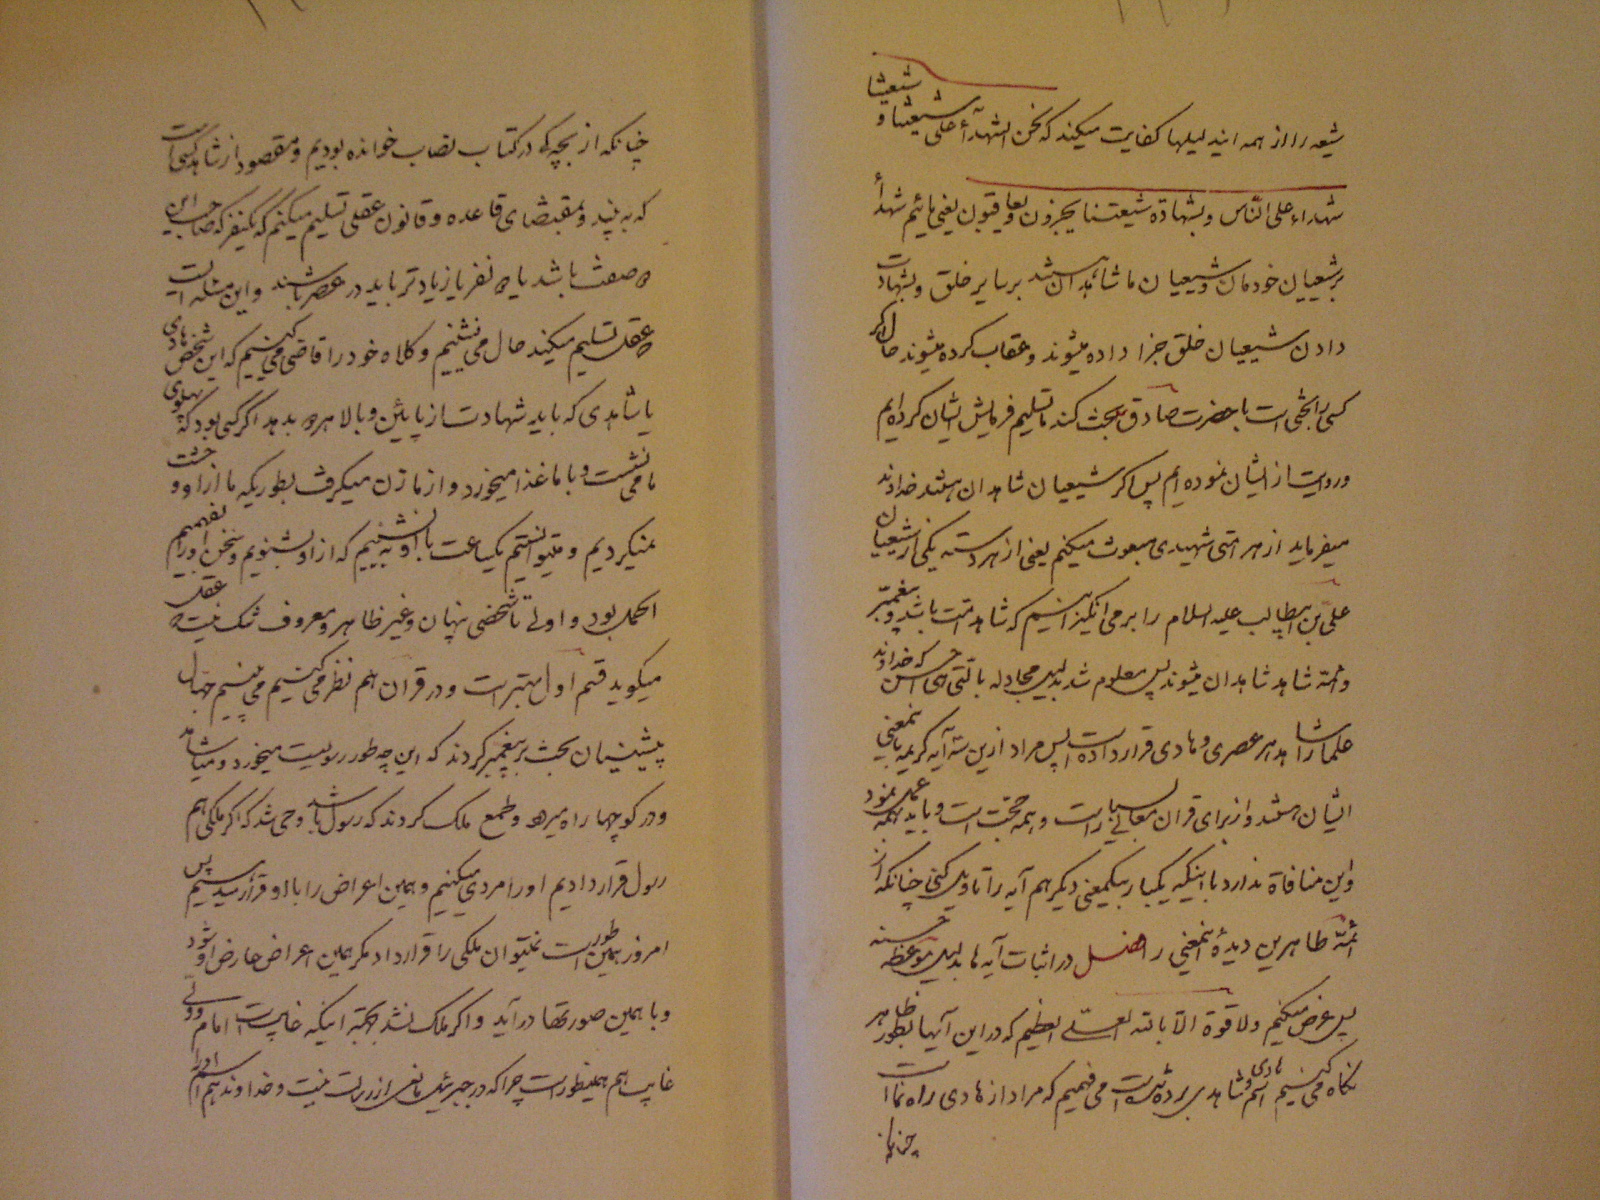 شیعه را از همه این دلیلها کفایت میکند که نحن الشهدآء علی شیعتنا و شیعتنا
شهداء علی الناس و بشهادة شیعتنا یجزون و یعاقبون یعنی مائیم شهدآء
بر شیعیان خودمان و شیعیان ما شاهدان هستند بر سایر خلق و بشهادت
دادن شیعیان خلق جزا داده میشوند و عقاب کرده میشوند حال اگر
کسی را بحثی است با حضرت صادق بحث کند ما تسلیم فرمایش ایشان کرده‌ایم
و روایت از ایشان نموده‌ایم پس اگر شیعیان شاهدان هستند خداوند
میفرماید از هر امتی شهیدی مبعوث میکنم یعنی از هر دسته یکی از شیعیان
علی بن ابیطالب علیه السلام را برمی انگیزانیم که شاهد امت باشد و پیغمبر
و ائمه شاهد شاهدان میشوند پس معلوم شد بدلیل مجادله بالتی هی احسن که خداوند
علما را شاهد هر عصری و هادی قرار داده است پس مراد ازین سه آیه کریمه باینمعنی
ایشان هستند و از برای قران معانی بسیار است و همه حجت است و باید بهمه عمل نمود
و این منافاة ندارد با اینکه یکبار بیکمعنی دیگر هم آیه را تاویل کنی چنانکه از
ائمه طاهرین دیدهٔ اینمعنی را فصل در اثبات آیه ها بدلیل موعظه حسنه
پس عرض میکنیم و لا قوة الا بالله العلی العظیم که در این آیهها بطور ظاهر
نگاه می کنیم اسم هادی و شاهدی برده شده است می فهمیم که مراد از هادی راه نما است
چنانکه
چنانکه از بچه‌گی در کتاب نصاب خوانده بودیم و مقصود از شاهد کسی است
که به بیند و بمقتضای قاعده و قانون عقلی تسلیم میکنم که یکنفر که صاحب این
صفت باشد یا نفر یا زیادتر باید در عصر باشند و این مسئله است
عقل تسلیم میکند حال می نشینیم و کلاه خود را قاضی می کنیم که این شخص هادی
یا شاهدی که باید شهادت از پائین و بالا بدهد اگر کسی بود که پهلوی
ما می نشست و با ما غذا میخورد و از ما زن میگرفت بطوریکه ما از او وحشت
نمیکردیم و میتوانستیم یکساعت با او به نشینیم که از او بشنویم و سخن او را بفهمیم
اکمل بود و اولی تا شخصی پنهان و غیر ظاهر و معروف شک نیست عقل
میگوید قسم اول بهتر است و در قران هم نظر می کنیم می بینیم جهال
پیشینیان بحث بر پیغمبر کردند که این چه طور رسولیست میخورد و میاشامد
و در کوچها راه میرود و طمع ملک کردند که رسول باشد وحی شد که اگر ملکی هم
رسول قرار دادیم او را مردی میکنیم و همین اعراض را با او قرار میدهیم پس
امروز همین طور است نمیتوان ملکی را قرار داد مگر همین اعراض عارض او شود
و با همین صورتها درآید و اگر ملک نشد بجهة اینکه غایب است امام
غایب هم همینطور است چرا که در جبرئیل مانعی از رسالت نیست و خداوند هم او را